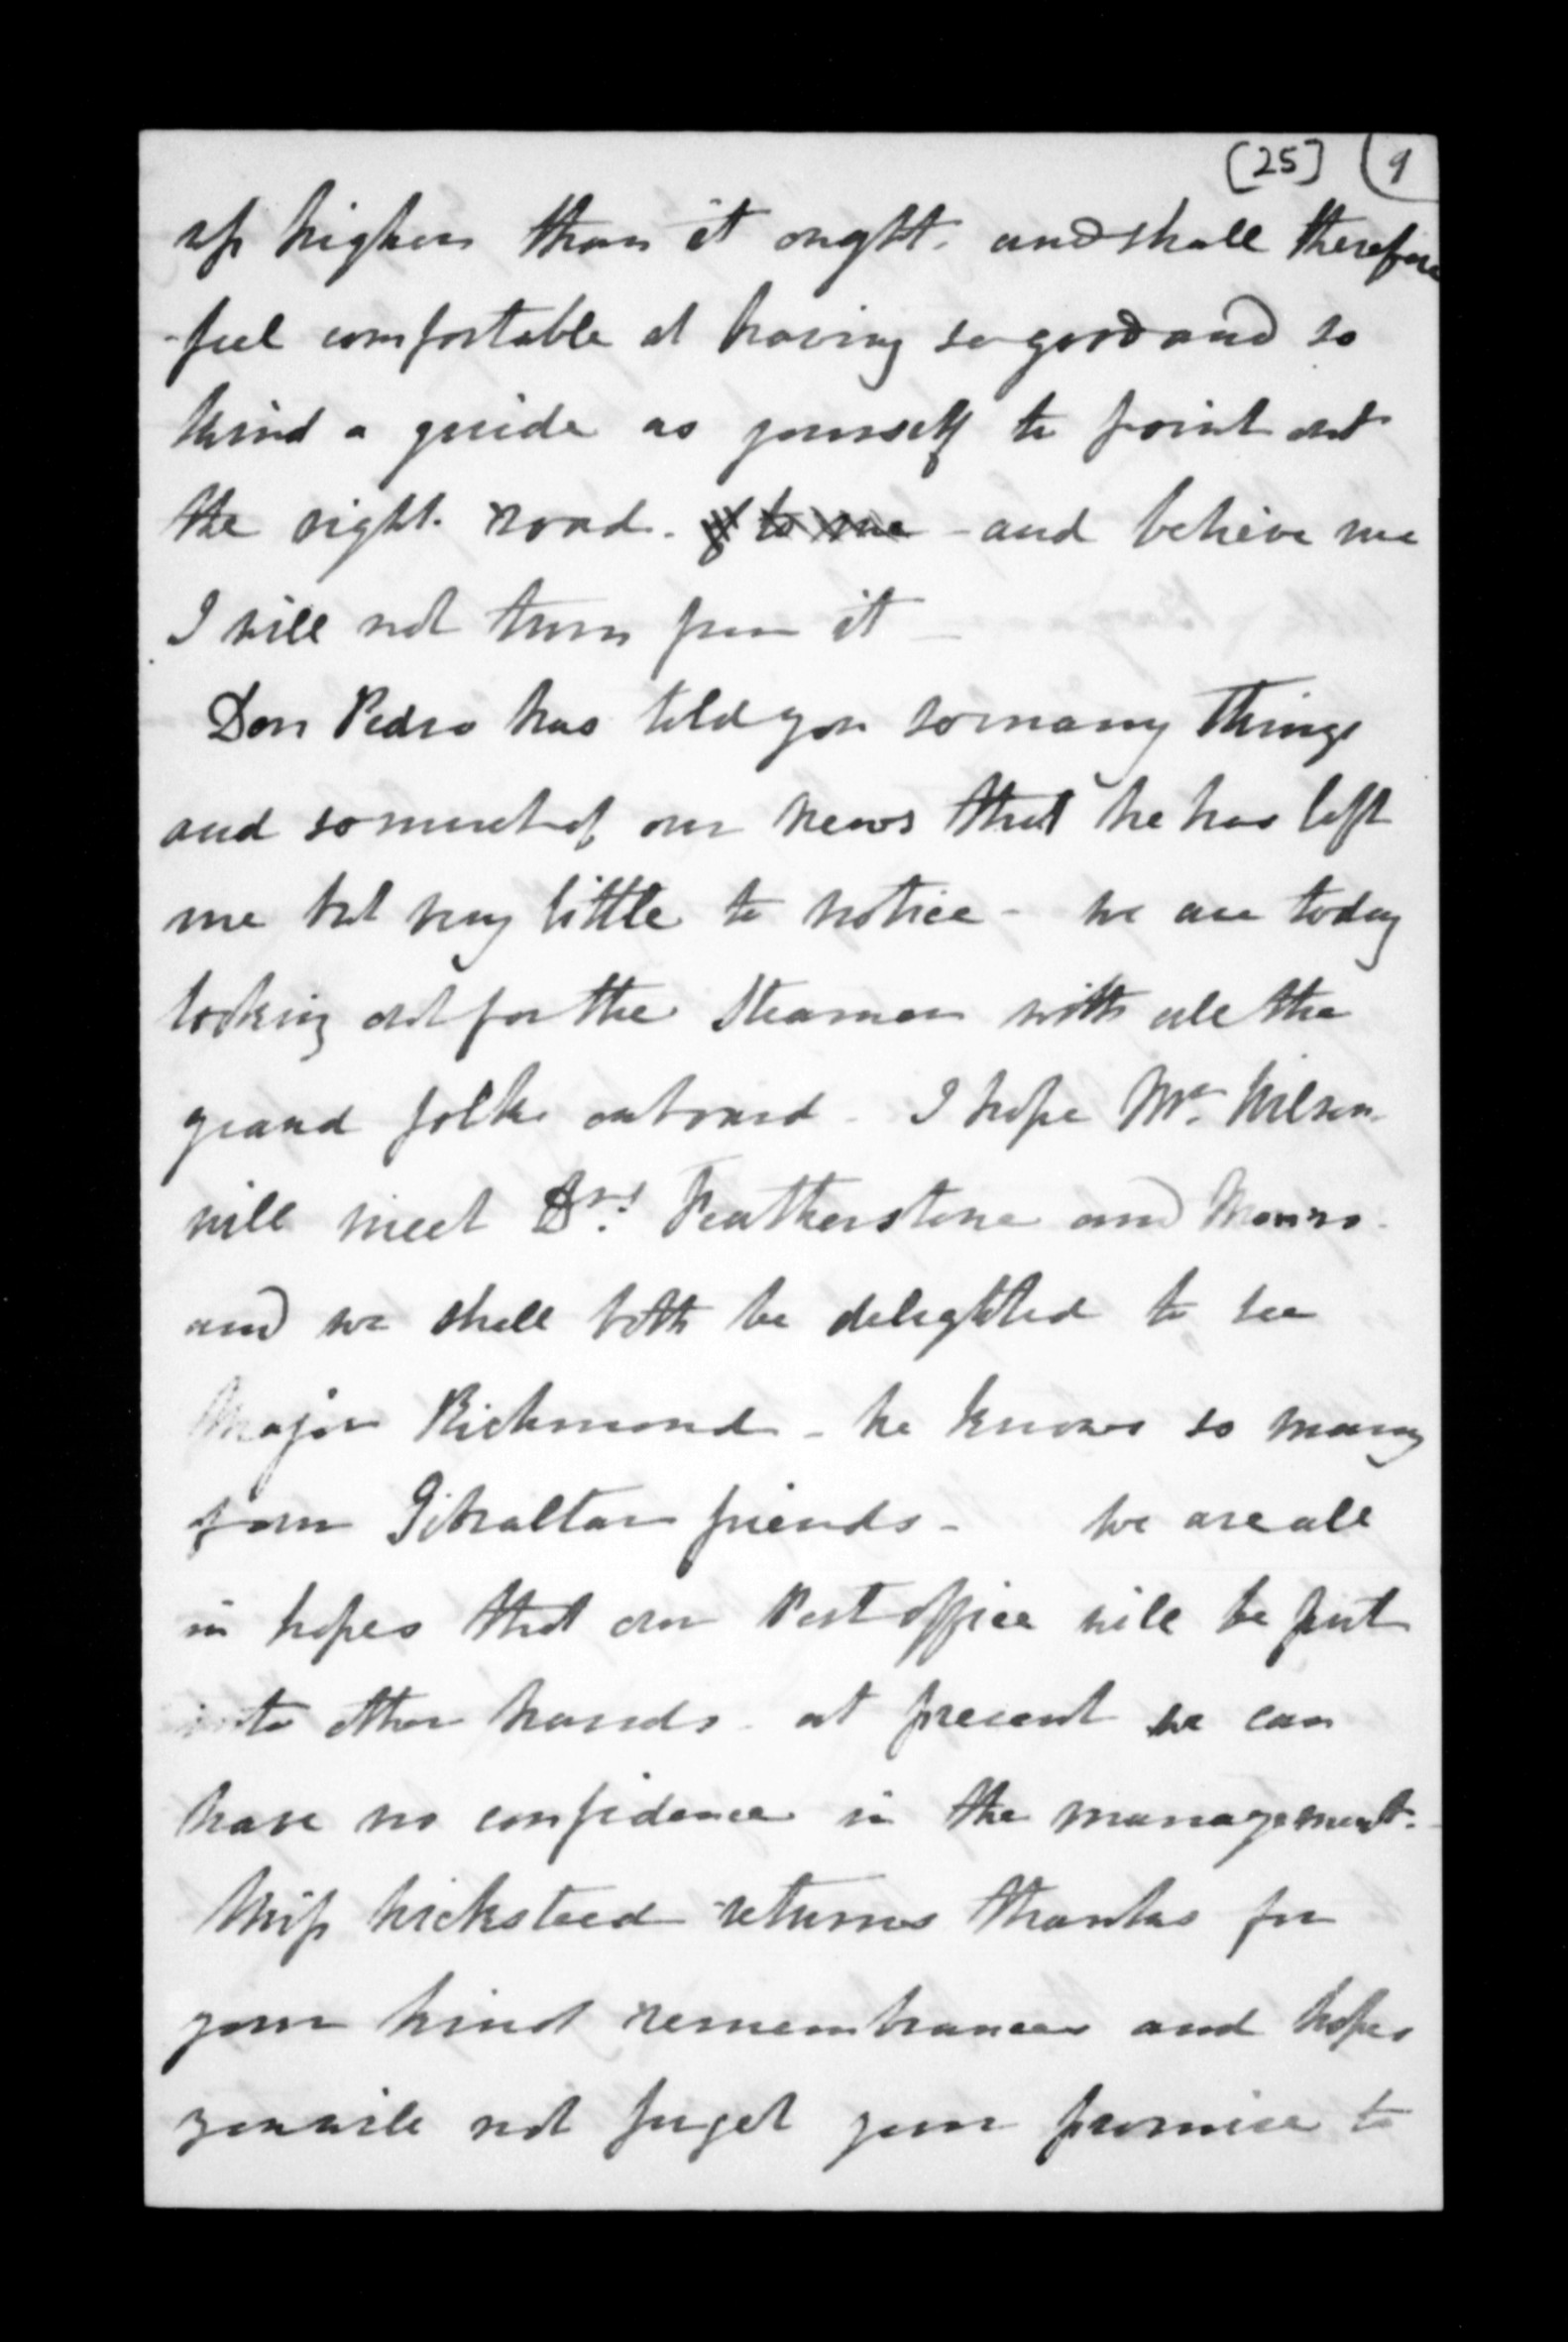 [25] 9
up higher than it ought. and shall therefore
feel comfortable at having so good and so
kind a guide as yourself to point out
the right road. to me - and believe me
I will not turn from it -
Don Pedro has told you so many things
and so much of our news that he has left
me but very little to notice - we are today
looking out for the Steamer with all the
grand folks onboard - I hope Mr. Wilson
will meet Drs. Featherstone and Monro -
and we shall both be delighted to see
Major Richmond - he knows so many
of our Gibraltar friends - we are all
in hopes that our Post office will be put
into other hands - at present we can
have no confidence in the management. -
Miss Wicksteed returns thanks for
your kind remembrances and hopes
you will not forget your promise to